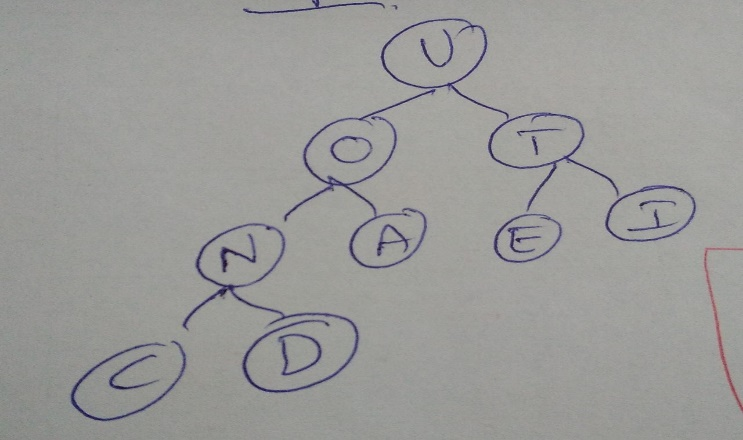 U
O T
N A E I
C D